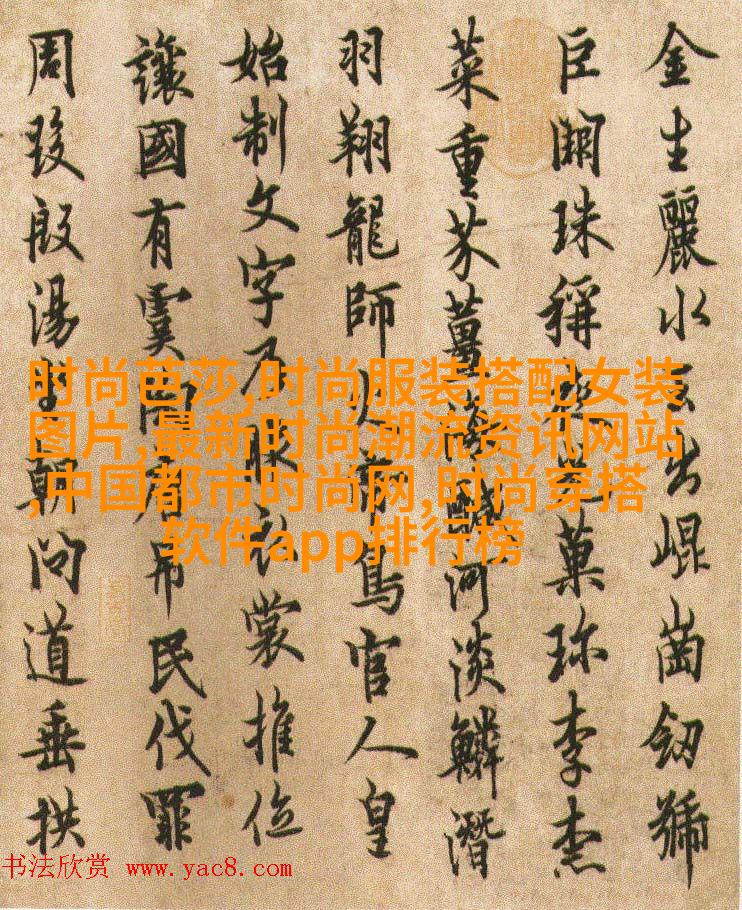 金生麗水玉出崐崗劒號
巨闕珠稱夜光菓珍李柰
菜重芥薑海鹹河淡鱗潛
羽翔龍師火帝鳥官人皇
始制文字乃服衣裳推位
讓國有虞陶唐吊民伐罪
周發殷湯坐朝問道垂拱
时尚芭莎,时尚服装搭配女装
图片,最新时尚潮流资讯网站
,中国都市时尚网,时尚穿搭
软件app排行榜
书法欣赏 www.yac8.com